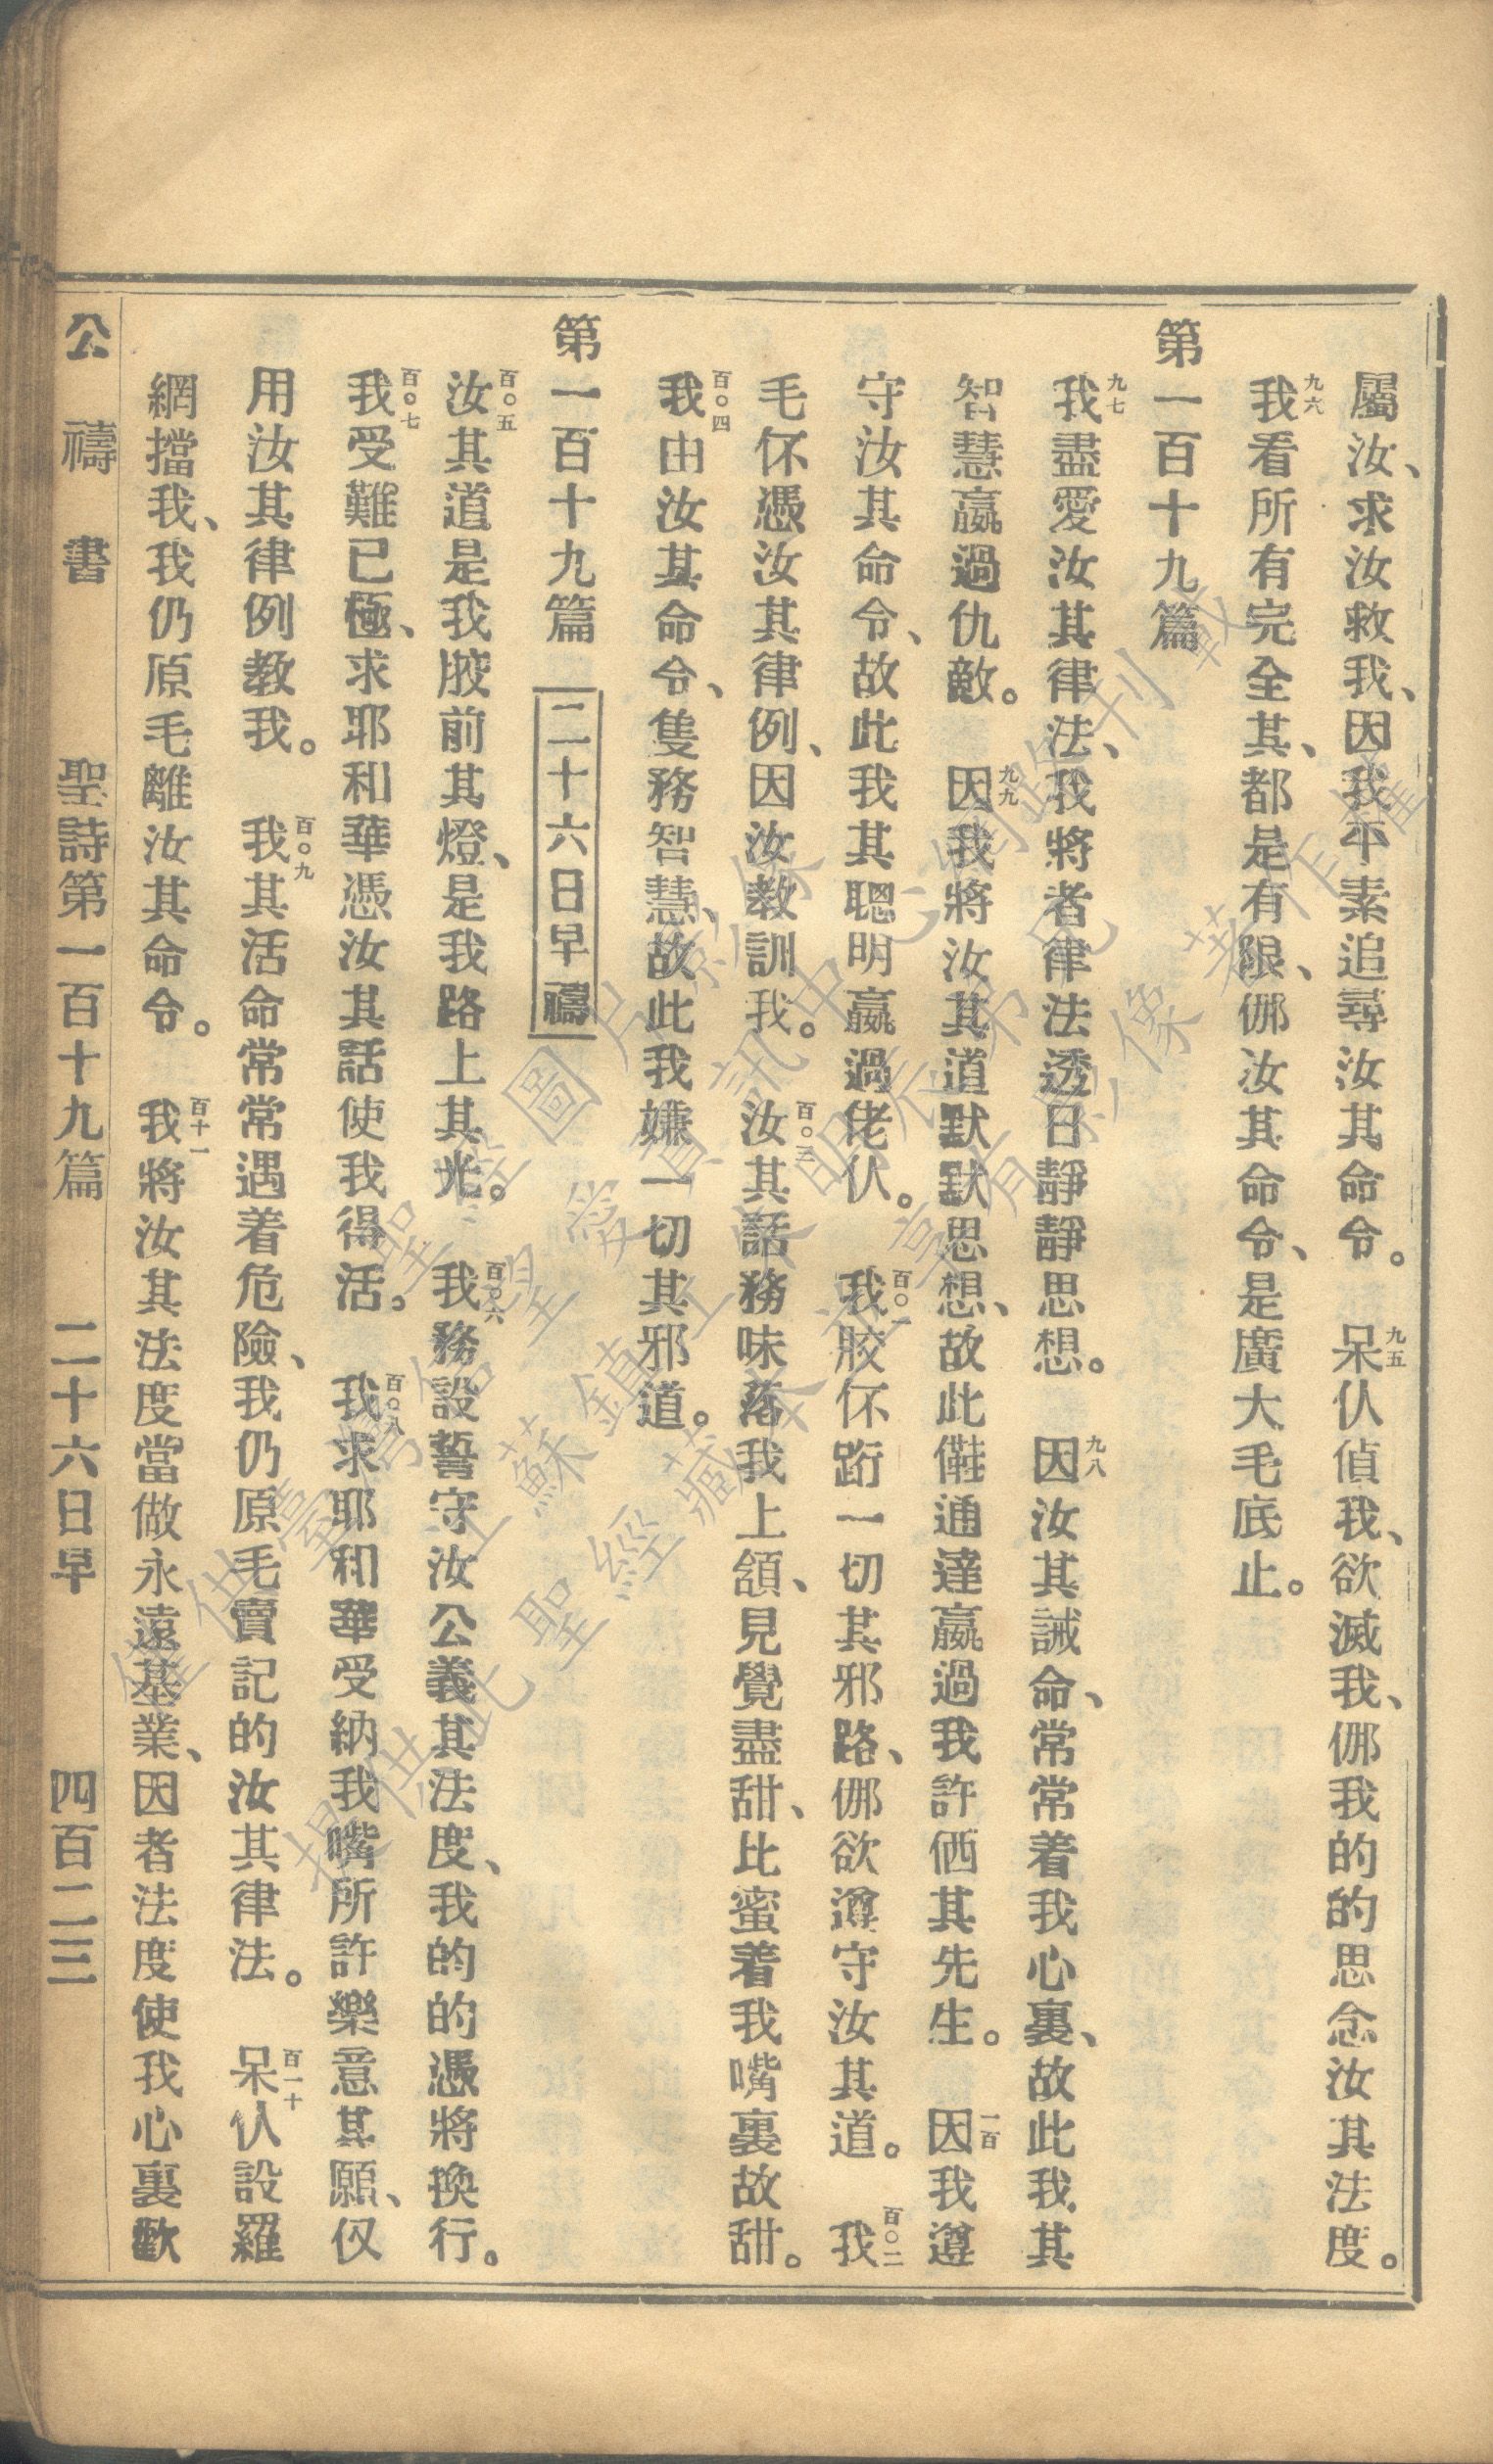 屬汝、求汝救我、因我平素追尋汝其命令。九五呆仈偵我、欲滅我、倻我的的思念汝其法度。
九六我看所有完全其、都是有限、倻汝其命令、是廣大毛底止。
第一百十九篇
九七我盡愛汝其律法、我將者律法透日靜靜思想。九八因汝其誡命、常常着我心裏、故此我其
智慧贏過仇敵。九九因我將汝其道默默思想、故此通達贏過我許其先生。一百因我遵
守汝其命令、故此我其聰明贏過佬仈。百〇一我骹伓跭一切其邪路、倻欲遵守汝其道。百〇二我
毛伓憑汝其律例、因汝教訓我。百〇三汝其話務味落我上頷、見覺盡甜、比蜜着我嘴裏故甜。
百〇四我由汝其命令、隻務智慧、故此我嫌一切其邪道。
第一百十九篇 二十六日早禱
百〇五汝其道是我骹前其燈、是我路上其光。百〇六我務設誓守汝公義其法度、我的的憑將換行。
百〇七我受難已極、求耶和華憑汝其話使我得活。百〇八我求耶和華受納我嘴所許樂意其願、仅
用汝其律例教我。百〇九我其活命常常遇着危險、我仍原毛賣記的汝其律法。百一十呆仈設羅
網擋我、我仍原毛離汝其命令。百十一我將汝其法度當做永遠基業、因者法度使我心裏歡
公禱書 聖詩第一百十九篇 二十六日早 四百二三